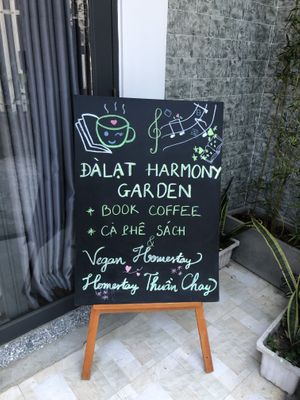 ĐÀLẠT HARMONY
GARDEN
* BOOK COFFEE
* CÀ PHÊ SÁCH
&
Vegan Homestay
Homestay Thuần Chay